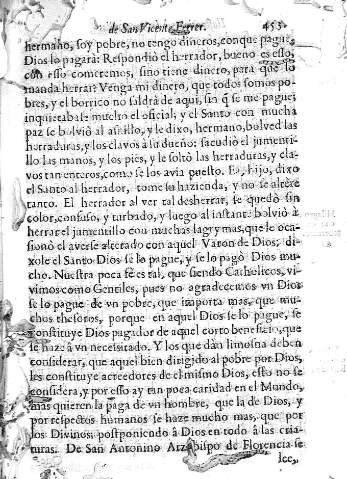 de San Vicente Ferrer. 453
hermano, soy pobre, no tengo dineros, con que pague
Dios lo pagarà: Respondiò el herrador, bueno es esso,
con esso comeremos, sino tiene dinero, para que lo
manda herrar? Venga mi dinero, que todos somos po-
bres, y el borrico no saldrà de aqui, sin q̃ se me pague:
inquietabase mucho el oficial; y el Santo con mucha
paz se bolviò al asnillo, y le dixo, hermano, bolved las
herraduras, y los clavos à su dueño: sacudiò el jumenti-
llo las manos, y los pies, y le soltò las herraduras, y cla-
vos tan enteros, como se los avia puesto. Ea, hijo, dixo
el Santo al herrador, tome su hazienda, y no se altere
tanto. El herrador al ver tal desherrar, se quedò sin
color, confuso, y turbado, y luego al instante bolviò à
herrar el jumentillo con muchas lagrymas, que le oca-
sionò el averse alterado con aquel Varon de Dios; di-
xole el Santo Dios se lo pague, y se lo pagò Dios mu-
cho. Nuestra poca fè es tal, que siendo Catholicos, vi-
vimos como Gentiles, pues no agradecemos vn Dios
se lo pague de vn pobre, que importa mas, que mu-
chos thesoros, porque en aquel Dios se lo pague, se
constituye Dios pagador de aquel corto beneficio, que
se haze à vn necessitado. Y los que dàn limosna deben
considerar, que aquel bien dirigido al pobre por Dios,
les constituye acreedores de el mismo Dios, esto no se
considera, y por esso ay tan poca caridad en el Mundo,
mas quieren la paga de vn hombre, que la de Dios, y
por respectos humanos se haze mucho mas, que por
los Divinos; postponiendo à Dios en todo à las cria-
turas. De San Antonino Arzobispo de Florencia se
lee,